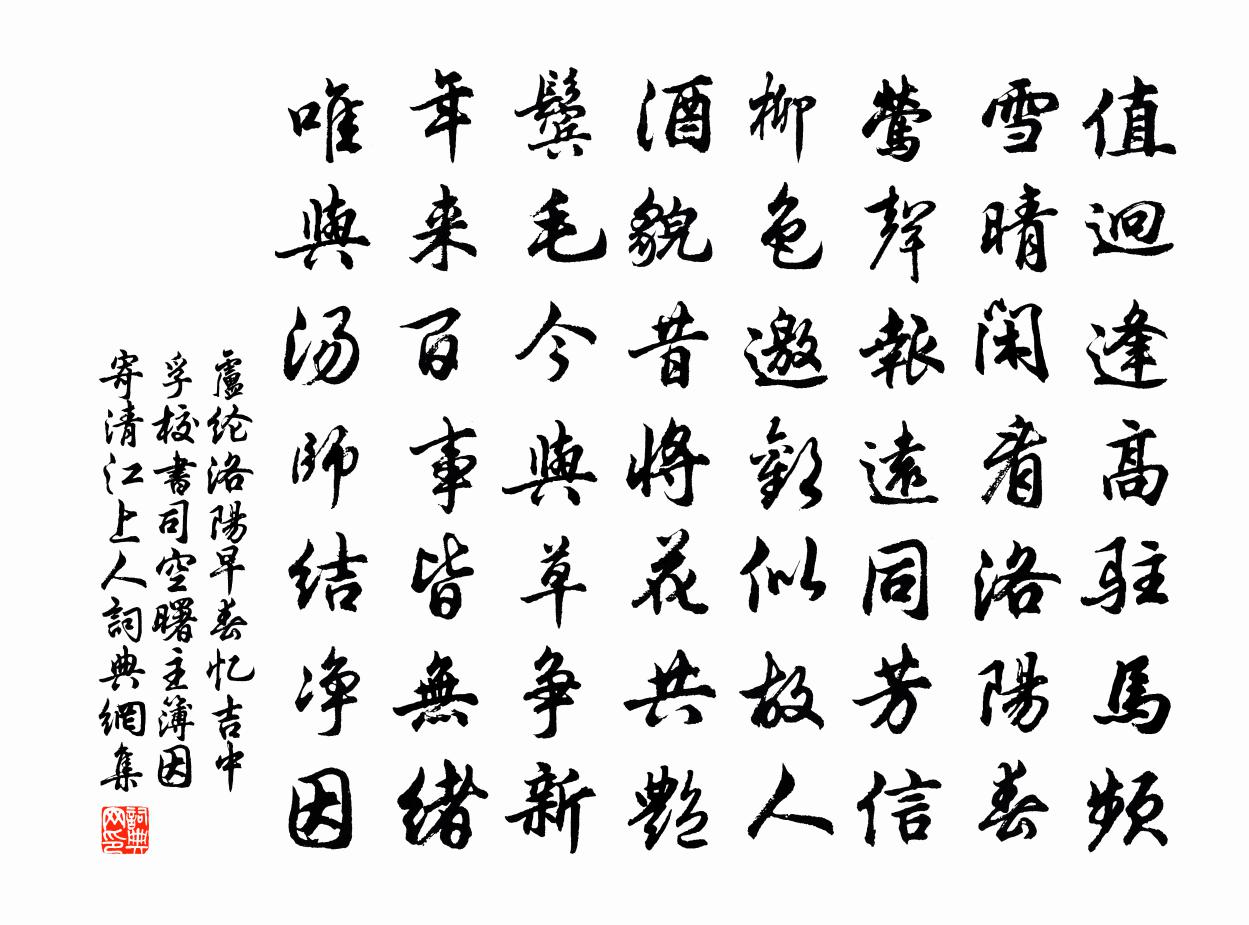 值迥逢高駐馬頻
雪晴閑看洛陽春
鶯聲報遠同芳信
柳色邀歡似故人
酒貌昔將花共艷
鬢毛今與草争新
年来百事皆無緒
唯與湯師结净因
盧纶洛陽早春忆吉中
孚校書司空曙主簿因
寄清江上人詞典網集
詞典网印